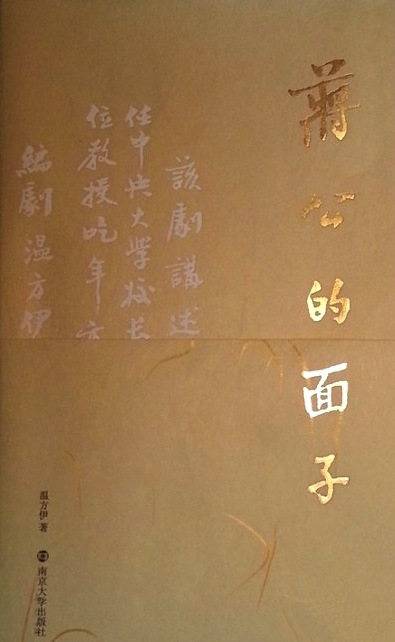 蒋公的面子
該劇講述
任中央大學校長
位教授吃年
編劇温方伊
温方伊 著
南京大学出版社